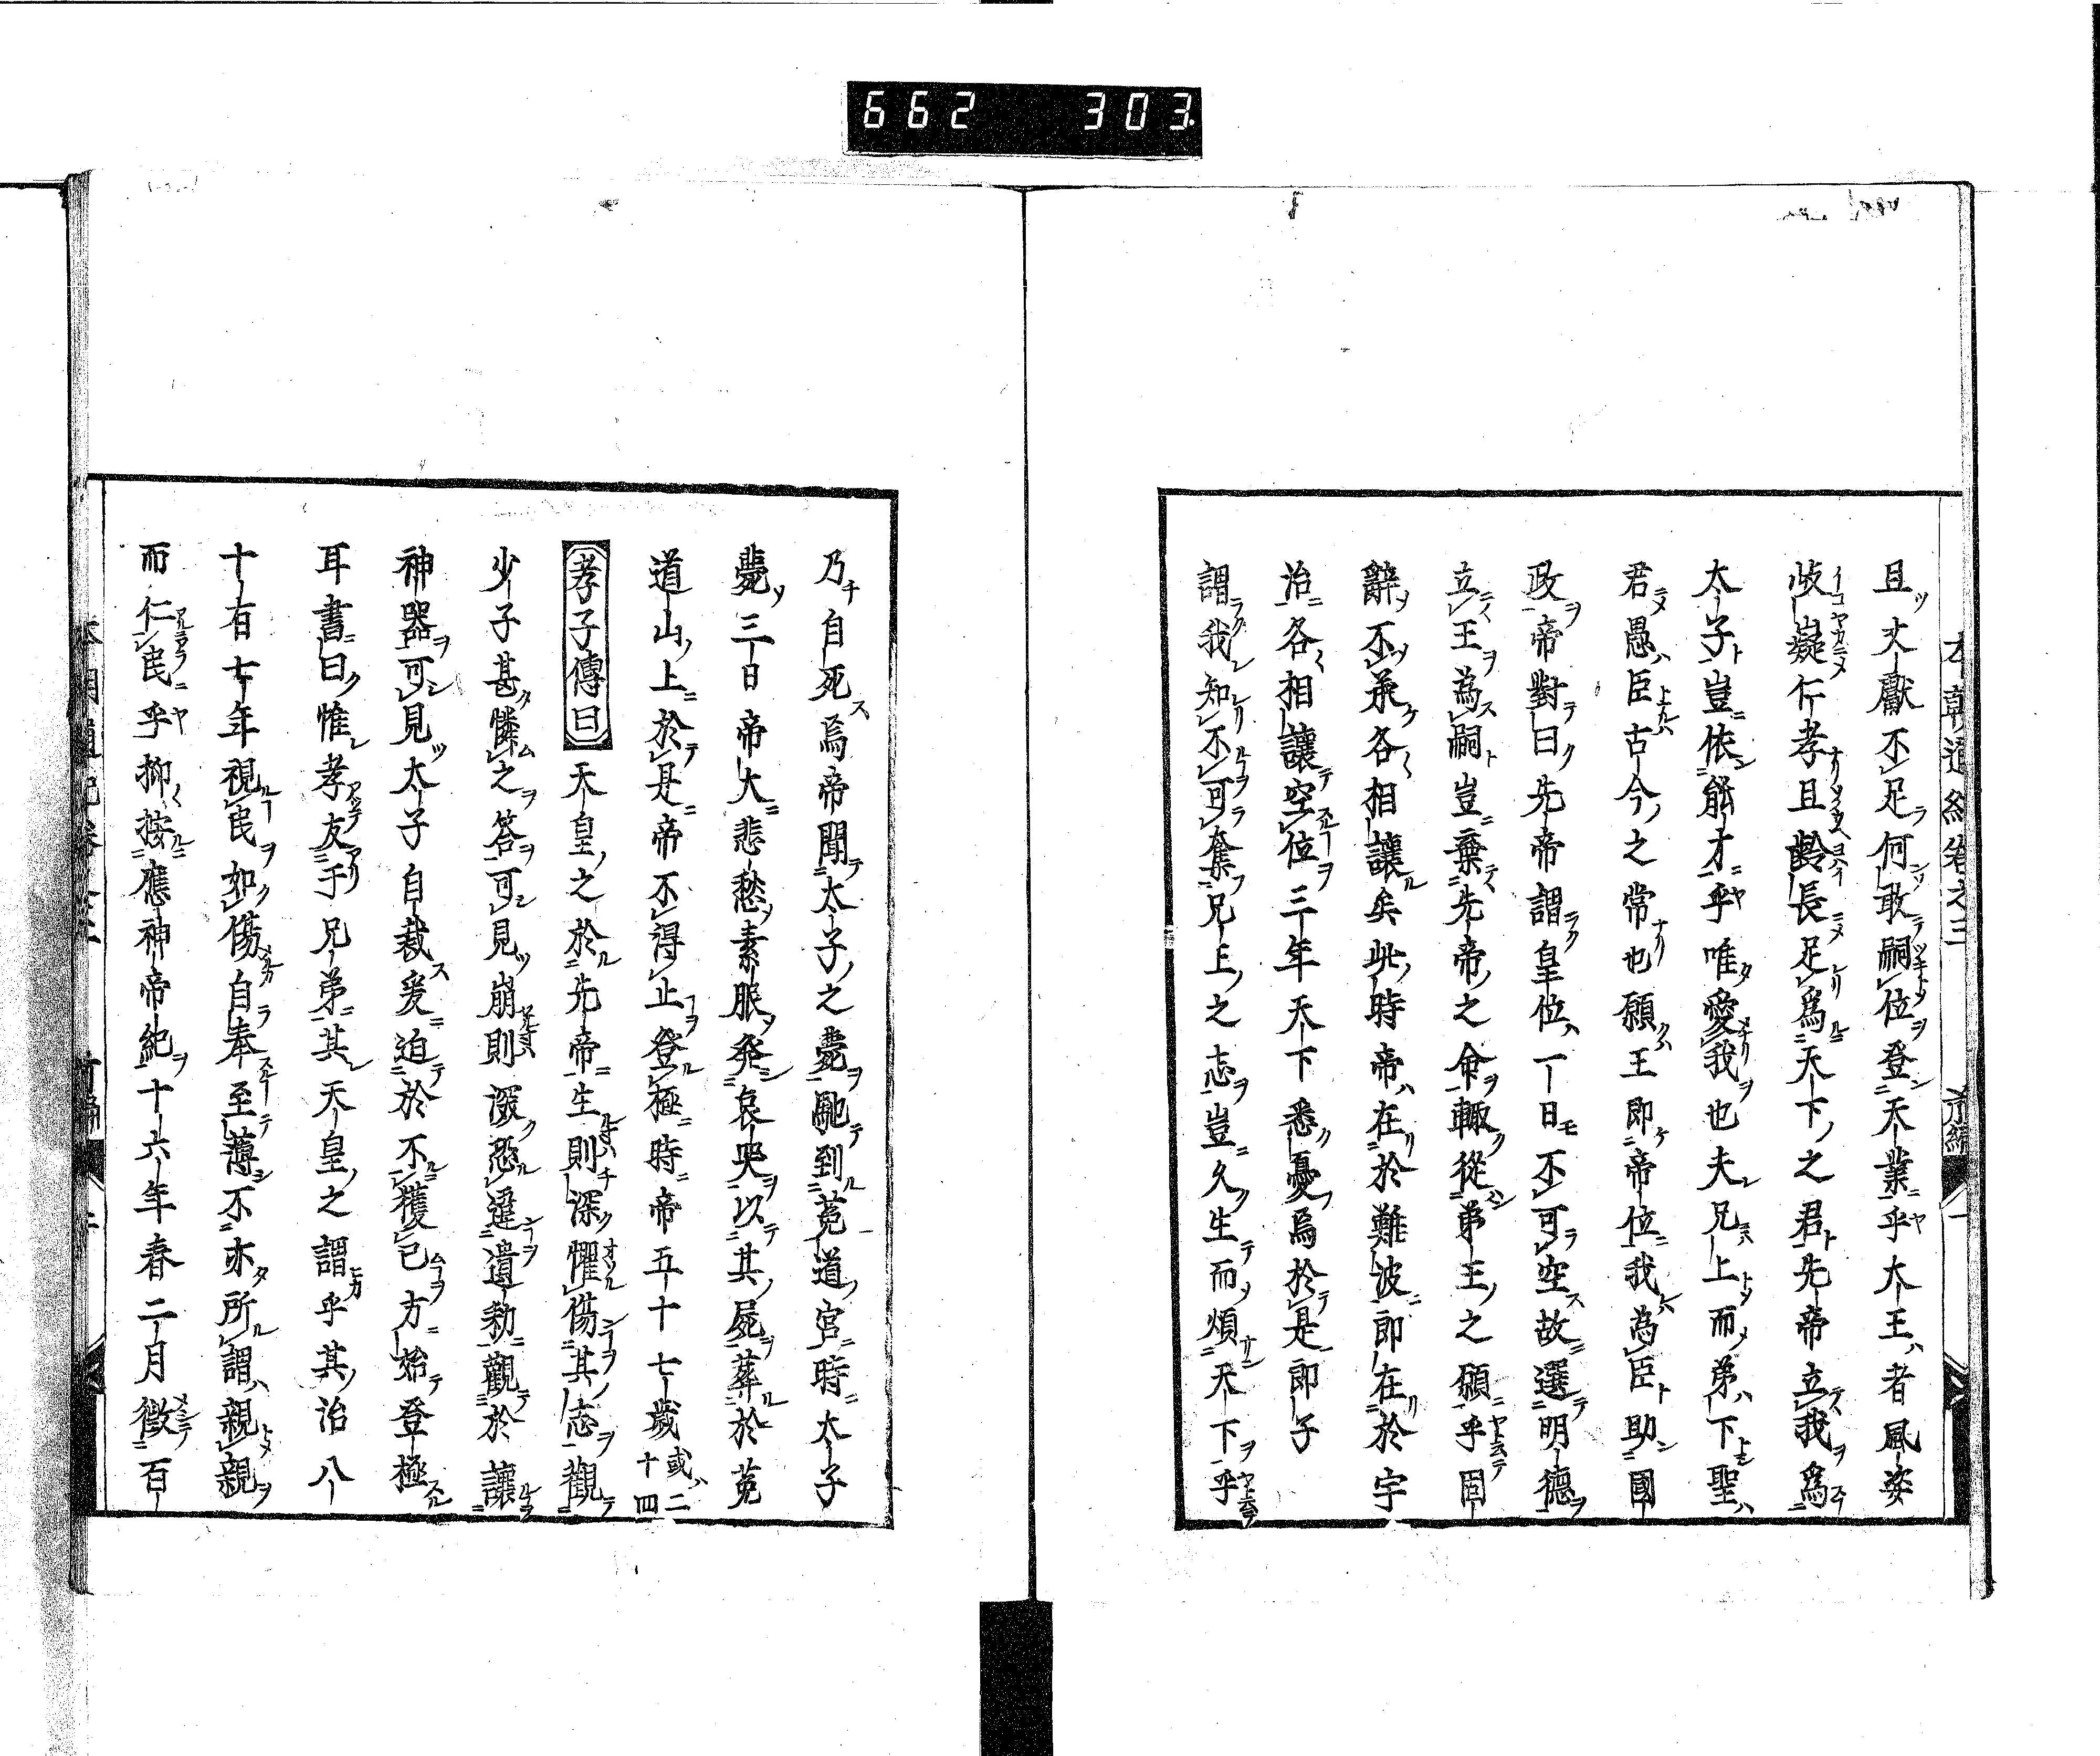 662 303.
本朝通紀卷之三 前編 一
且丈獻不足何敢嗣位登天業乎大王者風姿
岐嶷仁孝且齡長足爲天下之君先帝立我爲
太子豈依能才乎唯愛我也夫兄上而弟下聖
君愚臣古今之常也願王即帝位我為臣助國
政帝對曰先帝謂皇位一日不可空故選明德
立王為嗣豈棄先帝之命輙從弟王之願乎固
辭不承各相讓矣此時帝在於難波即在於宇
治各相讓空位三年天下悉憂焉於是即子
謂我知不可奪兄上之志豈久生而煩天下乎
乃自死焉帝聞太子之薨馳到菟道宮時太子
薨三日帝大悲愁素服発哀哭以其屍葬於菟
道山上於是帝不得止登極時帝五十七歲或二十四
孝子傳曰天皇之於先帝生則深懼傷其志觀
少子甚憐之答可見崩則深恐違遺勅觀於讓
神器可見太子自裁爰迫於不獲已方始登極
耳書曰惟孝友于兄弟其天皇之謂乎其治八
十有七年視民如傷自奉至薄不亦所謂親親
而仁民乎抑按應神帝紀十六年春二月徵百
本朝通紀卷之三 前編 二